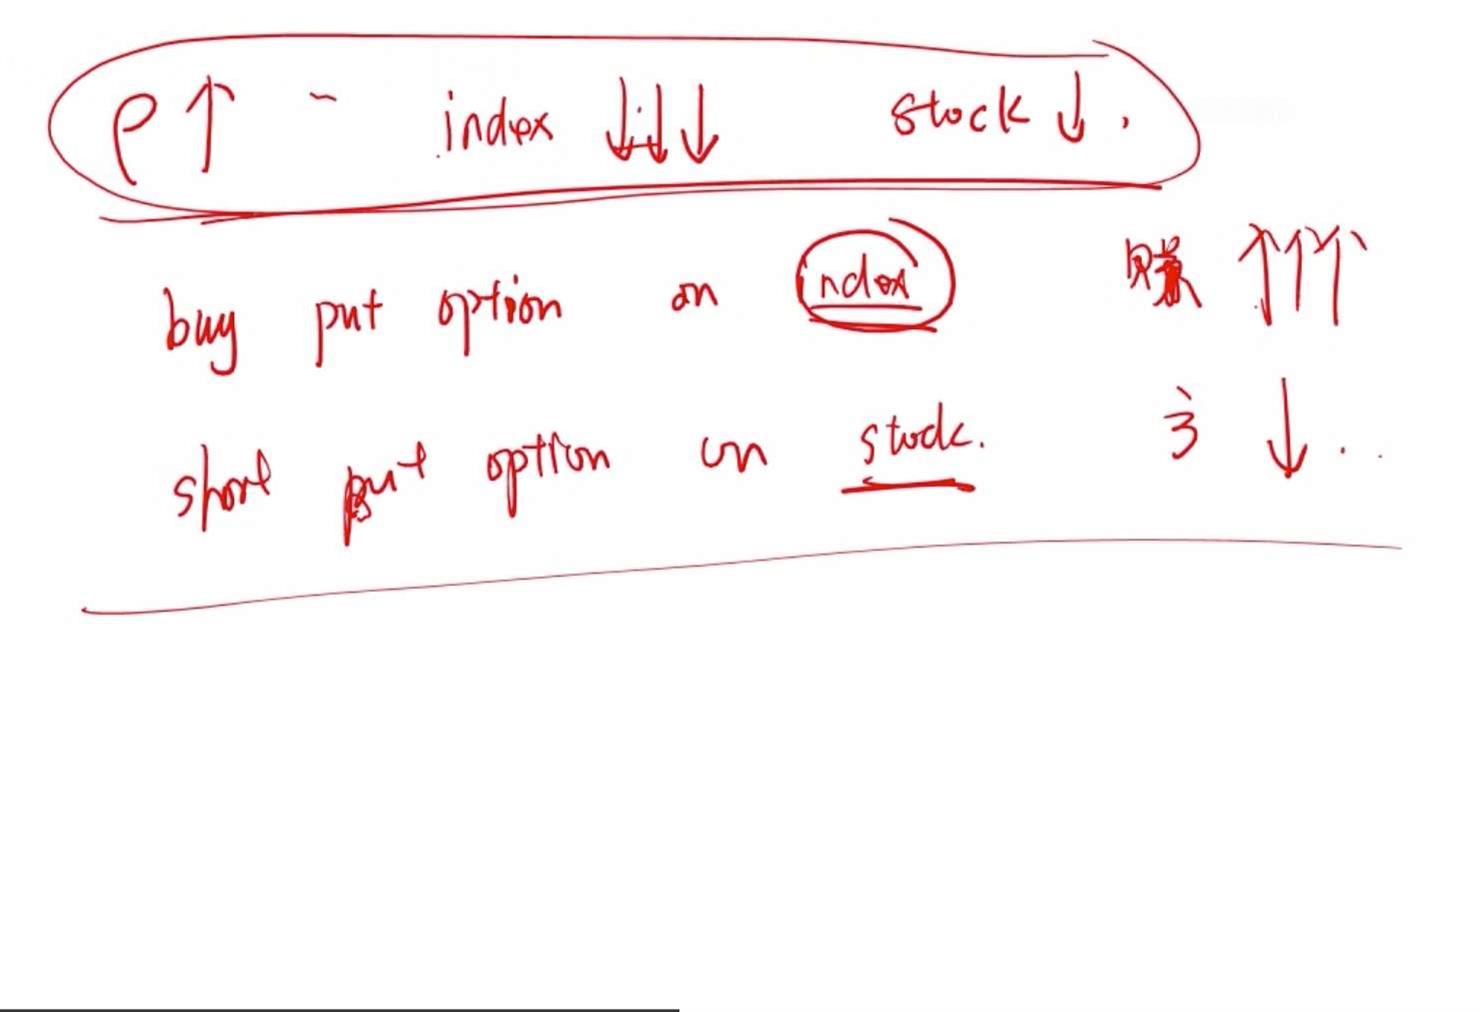 ρ↑ ~ index ↓↓↓ stock ↓.
buy put option on index 赚 ↑↑↑
short put option on stock. 亏 ↓..